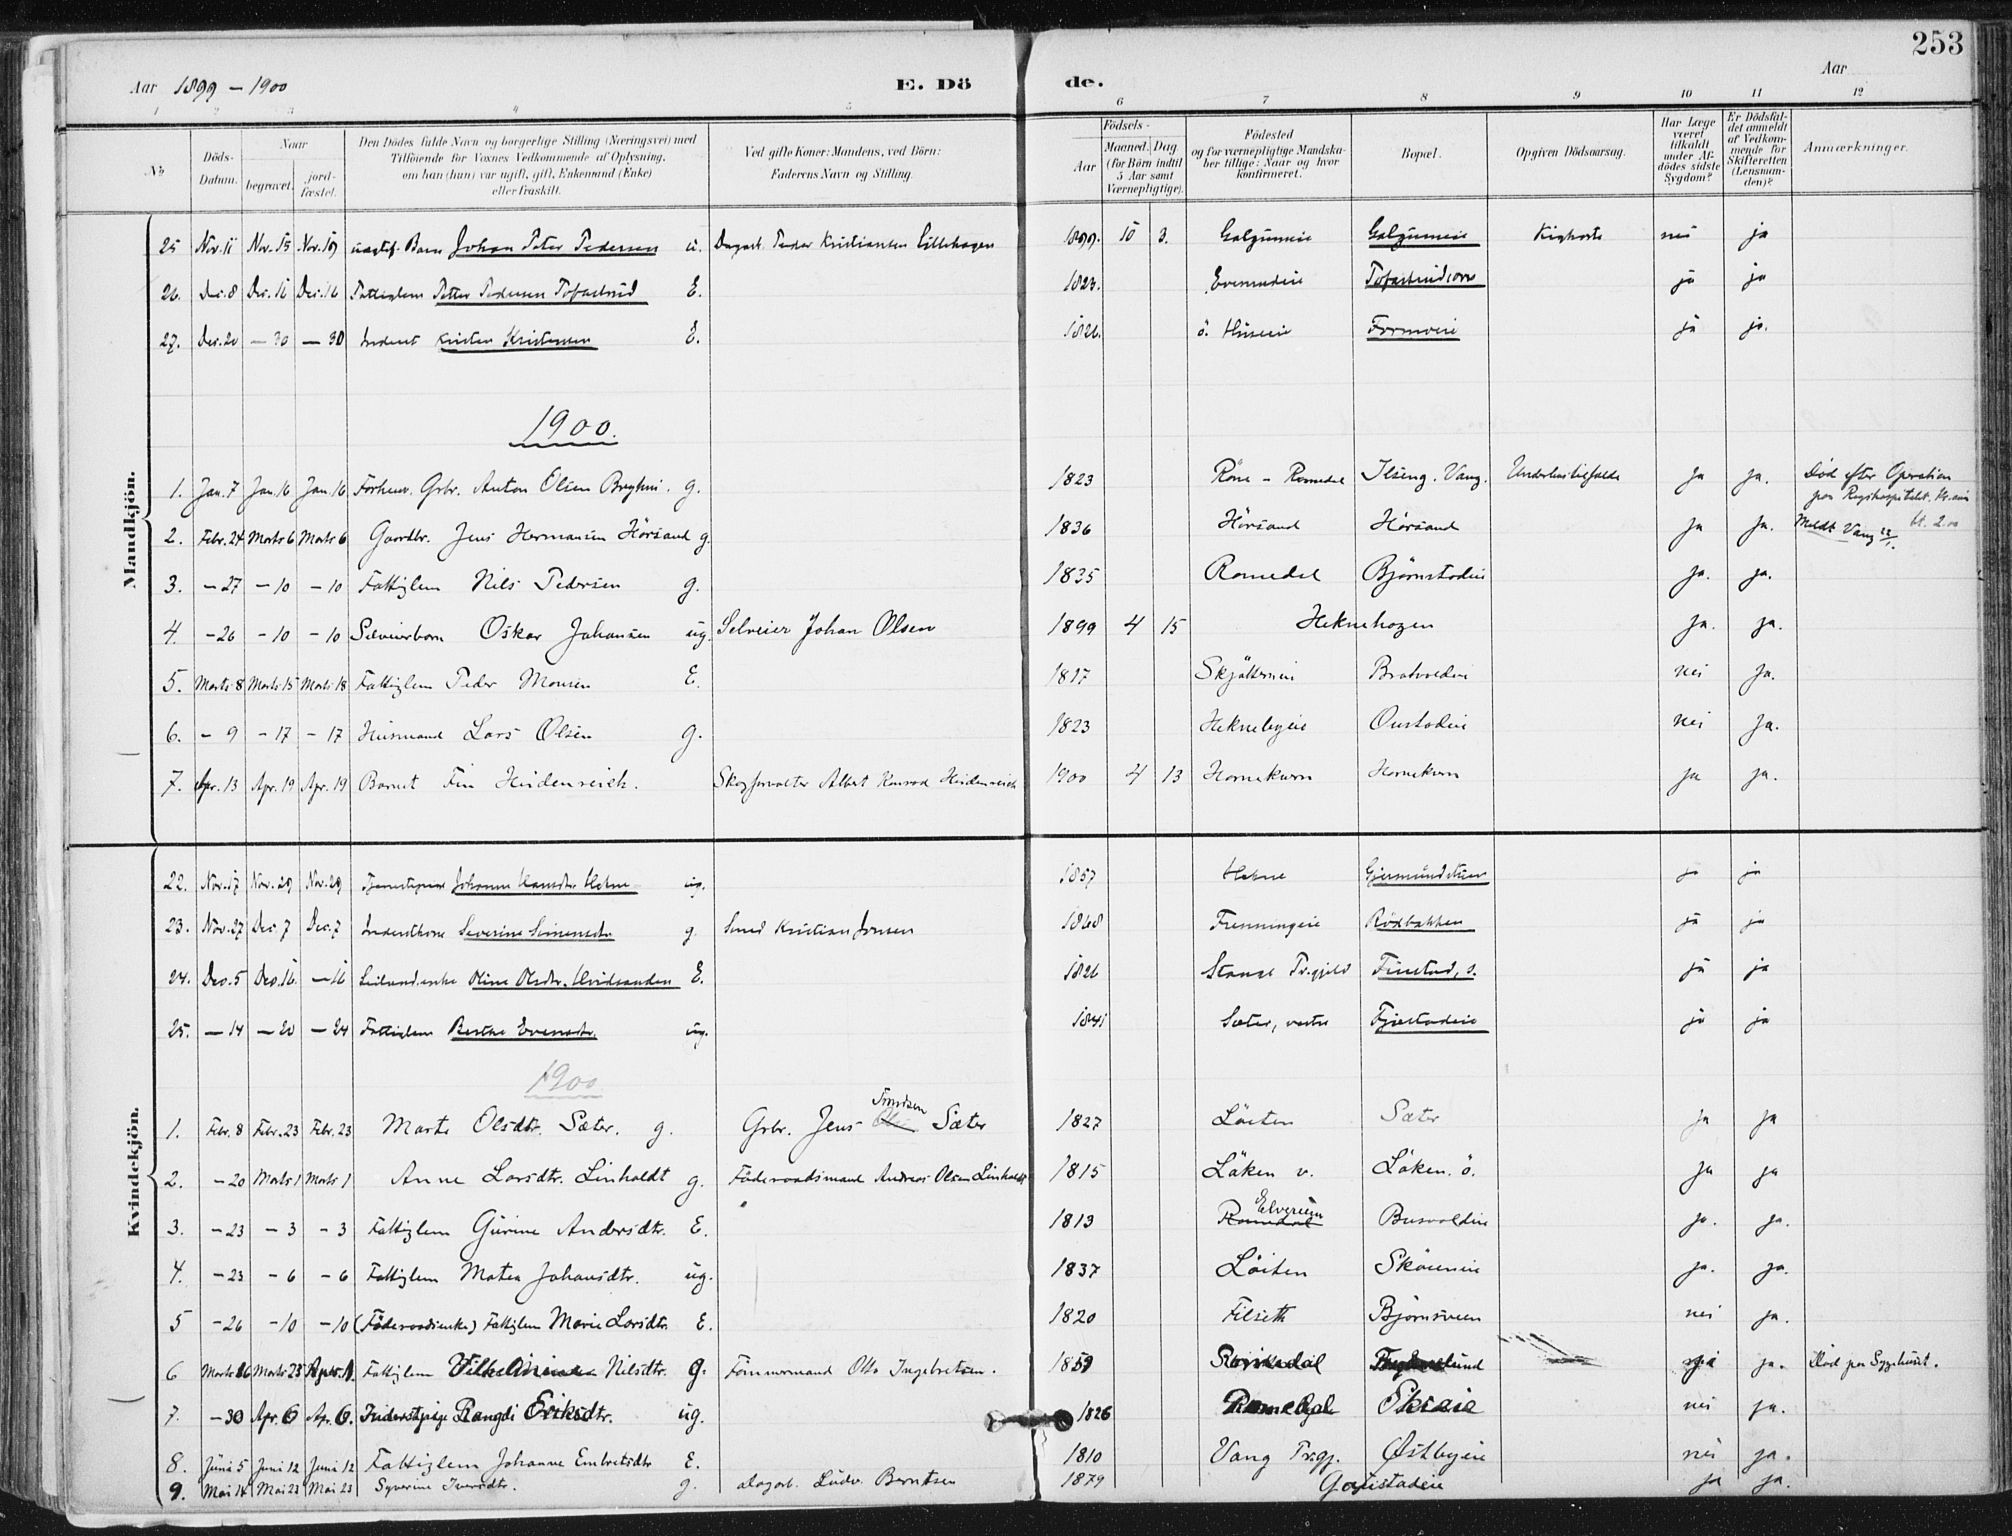 253
Aar 1899 – 1900
E. Dö de.
Aar
1 2 3 4 5 6 7 8 9 10 11 12
№
Döds-Datum.
Naar
begravet.
jord-fæstet.
Den Dödes fulde Navn og borgerlige Stilling (Næringsvei) med Tilföiende for Voxnes Vedkommende af Oplysning, om han (hun) var ugift, gift, Enkemand (Enke) eller fraskilt.
Ved gifte Koner: Mandens, ved Börn: Faderens Navn og Stilling.
Födsels-
Aar
Maaned. Dag
(for Börn indtil 5 Aar samt Værnepligtige).
Födested og for værnepligtige Mandskaber tillige: Naar og hvor konfirmeret.
Bopæl.
Opgiven Dödsaarsag.
Har Læge været tilkaldt under Afdödes sidste Sygdom?
Er Dödsfaldet anmeldt af Vedkommende for Skifteretten (Lensmanden)?
Anmærkninger.
Mandkjön.
25 Nov. 11 Nov. 15 Nov. 19 uægtef. Barn Johan Peter Pedersen u. Dagarb. Peder Kristiansen Lillehagen 1899. 10 3. Galgumeie Galgumeie Kighoste nei ja
26. Dec. 8 Dec. 16 Dec. 16 Fattiglem Petter Pedersen Tofastrud E. 1823. Evenrudeie ja ja
27. Dec. 20 – 30 – 30 Inderst Kristen Kristensen E. 1826. ö. Huseeie ja ja.
1900.
1. Jan. 7 Jan. 16 Jan. 16 Forhenv. Grbr. Anton Olsen Bryhni. g. 1823 Röne – Romedal Ilseng. Vang. Underlivslidelse Ja ja. Död efter Operation paa Rigshospitalet, Kr.ania
2. Febr. 24 Marts 6 Marts 6 Gaardbr. Jens Hermansen Hörsand g. 1836 Hörsand Hörsand Ja Ja. Meldt Vang 22/1. bt. 2.00
3. – 27 – 10 – 10 Fattiglem Nils Pedersen g. 1835 Romedal Björnstadeie Ja. ja.
4. – 26 – 10 – 10 Selveierbarn Oskar Johansen ug. Selveier Johan Olsen 1899 4 15 Heknehagen Ja. ja.
5. Marts 8 Marts 15 Marts 18 Fattiglem Peder Monsen E. 1817 Bratvoldeie nei Ja.
6. – 9 – 17 – 17 Husmand Lars Olsen g. 1823 Heknebyeie Oustadeie nei Ja.
7. Apr. 13 Apr. 19 Apr. 19 Barnet Fin Heidenreich. Skogforvalter Albert Konrad Heidenreich 1900 4 13 Hornekvern Hornekvern ja ja.
Kvindekjön.
22. Nov. 17 Nov. 29 Nov. 29 Tjenestepige Johanne Hansdtr. Hekne ug. 1857 Hekne ja ja
23. Nov. 27 Dec. 7 Dec. 7 Inderstkone Severine Simensdtr. g. Smed Kristian Jonsen 1868 Frenningeie Röxbakken ja ja
24. Dec. 5 Dec. 16 – 16 Oline Olsdtr. Hvidsanden E. 1826 Stange Pr.gjeld Finstad, s. ja ja
25. – 14 – 20 – 24 Fattiglem Berthe Evensdtr. ug. 1841 Sæter, vestre Fjæstadeie ja ja
1900
1. Febr. 8 Febr. 23 Febr. 23 Marte Olsdtr. Sæter. g. Grbr. Jens Trondsen Sæter 1827 Löiten Sæter Ja ja
2. – 20 Marts 1 Marts 1 Anne Larsdtr. Linholdt g. Föderaadsmand Andreas Olsen Linholdt 1815 Löken v. Löken. ö. Ja ja
3. – 23 – 3 – 3 Fattiglem Gurine Andersdtr. E. 1813 Romedal Elverum Busvoldeie ja. ja.
4. – 23 – 6 – 6 Fattiglem Matea Johansdtr. ug. 1837 Löiten Sköieneie ja. ja.
5 – 26 – 10 – 10 (Föderaadsenke) Fattiglem Marie Larsdtr. E. 1820 Filseth Björnsveen nei ja.
6 Marts 16 Marts 25 April 1. Fattiglem Vilhelmine Nilsdtr. g. Tömmermand Otto Ingebretsen. 1859 Romedal nei ja. Död paa Sygehuset.
7. – 30 Apr. 6 Apr. 6. Inderstpige Rangdi Eriksdtr. ug. 1826 Romedal Ekraie nei ja.
8. Juni 5 Juni 12 Juni 12 Fattiglem Johanne Embretsdtr E. 1810 Vang Pr.gj. Østbyeie nei ja.
9. Mai 14 Mai 23 Mai 23 Syverine Iversdtr. g. Dagarb. Ludv. Berntsen 1879 Gaustadeie ja ja.